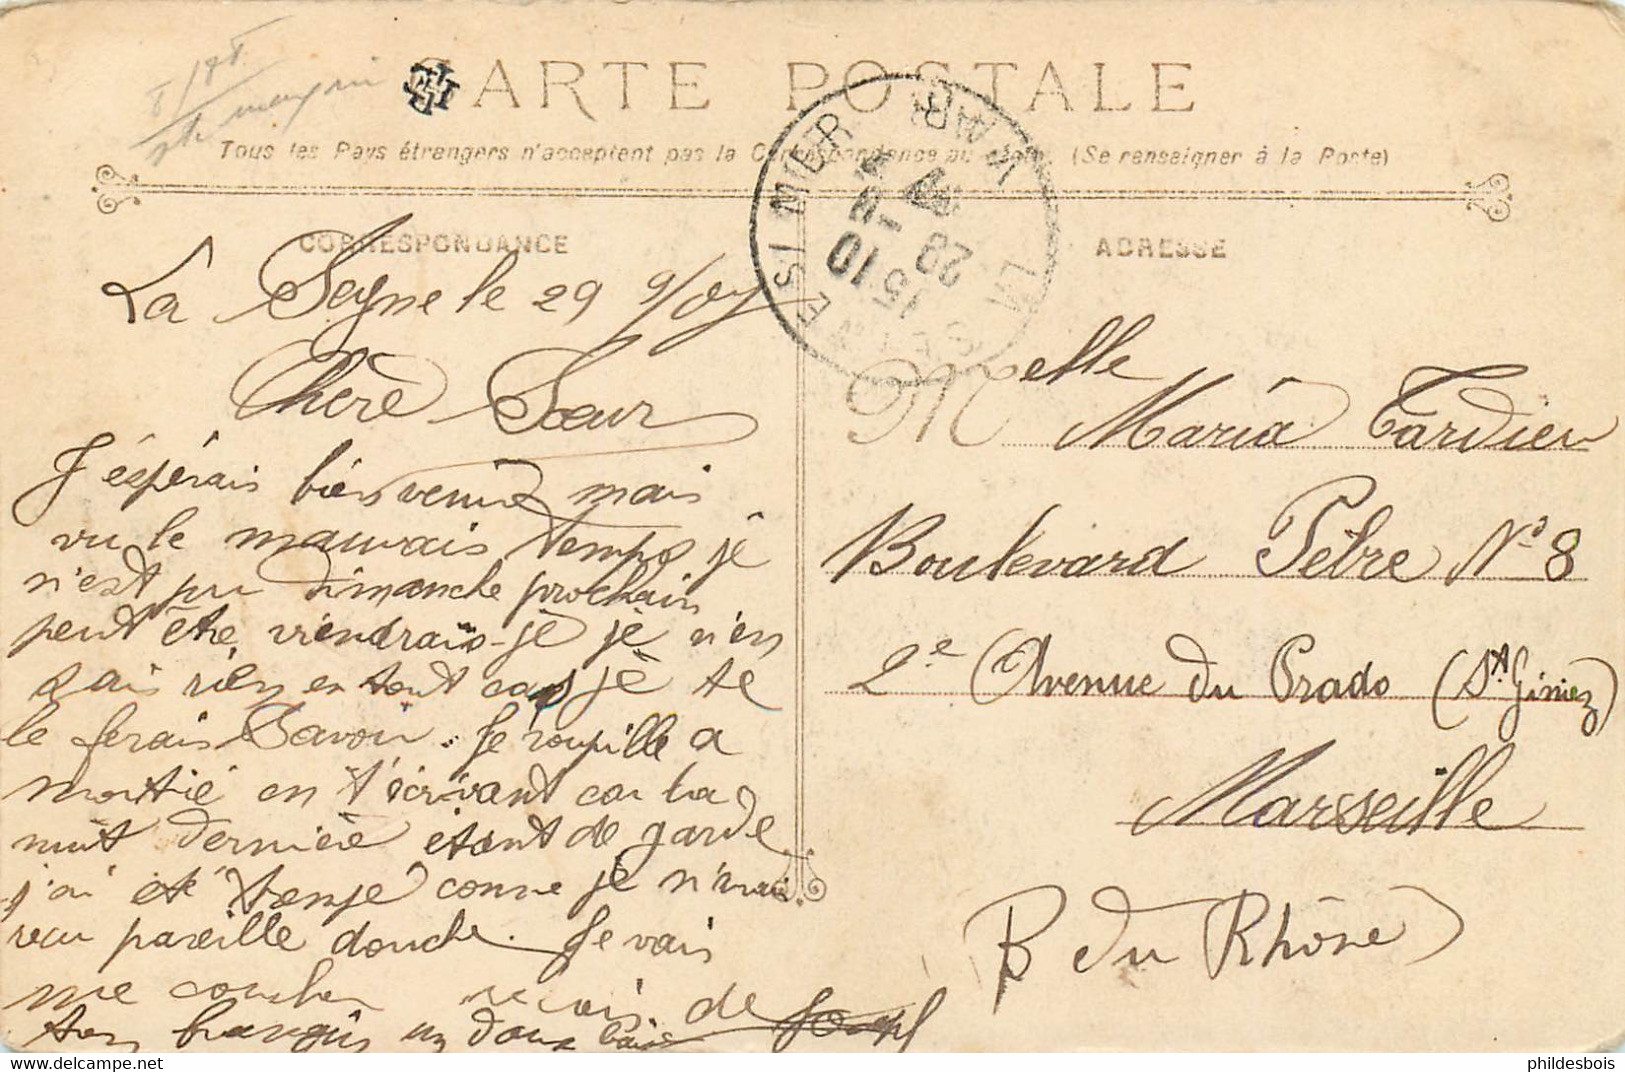 CARTE POSTALE
Tous les Pays étrangers n'acceptent pas la Correspondance au recto. (Se renseigner à la Poste)
CORRESPONDANCE
ADRESSE
LA SEYNE SI MER
VAR
15 10
29
La Seyne le 29 9/07
Chère Sœur
J'éspérais bien venir mais
vu le mauvais temps je
n'est pu Dimanche prochain
peut être viendrais-je je n'en
sais rien en tout cas je te
le ferais Savoir. Je roupille a
moitié en t'écrivant car la
nuit dernière étant de garde
j'ai été trempé comme je n'avai
reçu pareille douche. Je vais
me coucher recois de
ton frangin un doux baiser
Joseph
Melle
Maria Tardieu
Boulevard Pèbre No 8
2e Avenue du Prado (St Giniez)
Marseille
B du Rhône
phildesbois